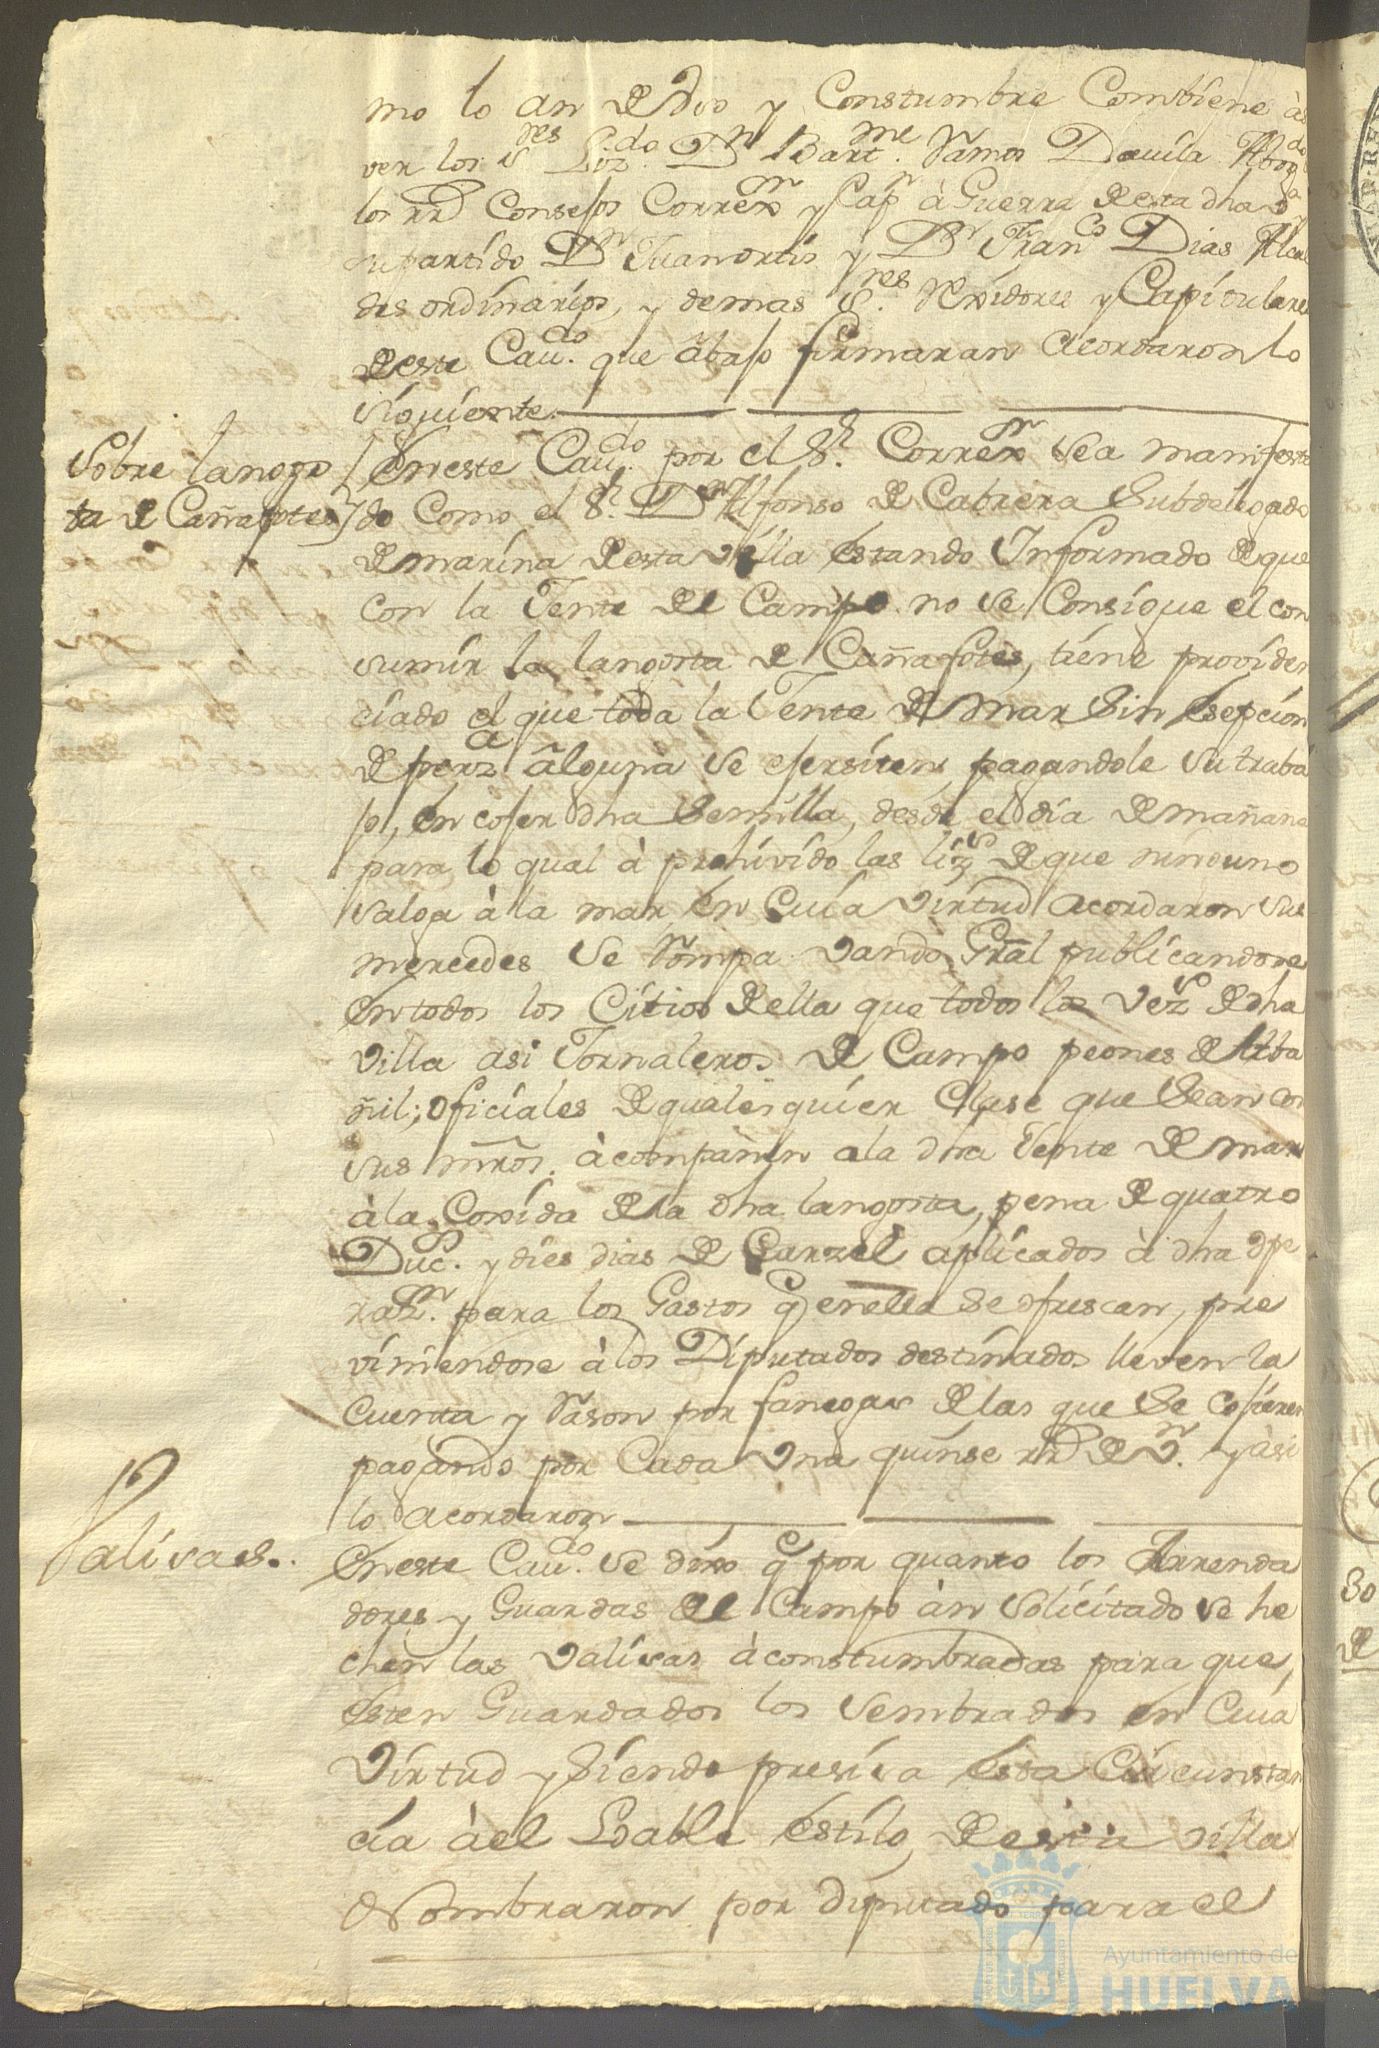 mo lo an de Uso y Constumbre Combiene à s
ver los Sres. Lizdo. Dn Bartme. Ramos Dauila Abogdo
los rrs Consejos Correxor y Capn à Guerra de esta dha Va y
su partido Dn Juan ortis y Dn Franco Dias Alcal
des ordinarios, y demas Sres. Rexidores y Capitulares
de este Caudo. que abajo firmaran Acordaron lo
siguiente
Sobre langos
ta de Cañafotes
En este Caudo. por el Sr. Correxor se a manifesta
do Como el Sr. Dn Alfonso de Cabrera Subdelegado
de marina de esta Villa estando Informado de que
con la Jente de el Campo no se Consigue el con
sumir la langosta de Cañafotes, tiene providen
ciado el que toda la Jente de Mar Sin esepcion
de perza alguna se ejersiten, pagandole su traba
jo, en cojer dha Semilla, desde el dia de mañana
para lo qual à prohivido las lizs de que ninguno
salga à la mar en Cuia Virtud Acordaron sus
mercedes Se Rompa Vando Gral publicandose
en todos los Citios de ella que todos los Vezs de dha
Villa asi Jornaleros de Campo peones de Alba
ñil; oficiales de qualesquier Clase que Sean con
sus mros. àcompañen a la dha Jente de mar
à la Coxida de la dha langosta, pena de quatro
Ducs. y dies dias de Carzel aplicados à dha ope
razn. para los Gastos q en ella Se ofrescan, pre
viniendose à los Diputados destinados lleven la
Cuenta y Rason por fanegas de las que Se Cojieren
pagando por Cada Vna quinse rrs de Vn. y àsi
lo acordaron
Valisas.
En este Caudo. se dixo q por quanto los Arrenda
dores y Guardas de el Campo àn Solicitado se he
chen las Valisas àconstumbradas para que
esten Guardados los Sembrados en Cuia
Virtud y Siendo presisa esta Circunstan
cia àel Loable estilo de esta Villa
Nombraron por diputado para el
Ayuntamiento de
HUELVA